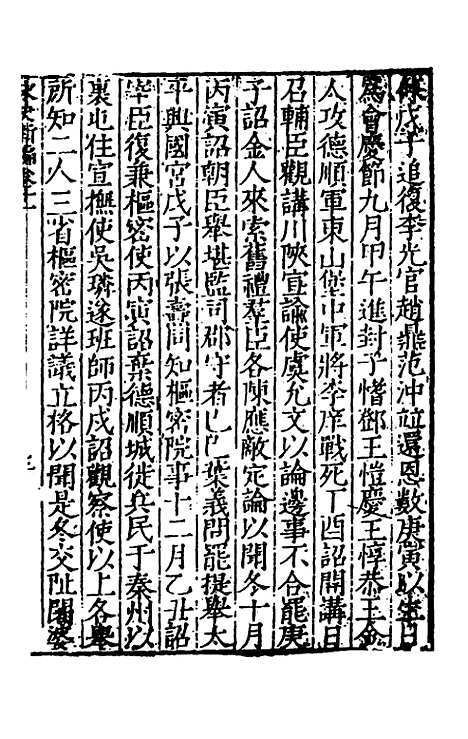 錄戊子追復李光官趙鼎范沖並還恩數庚寅以生日
爲會慶節九月甲午進封子愭鄧王愷慶王惇恭王金
人攻德順軍東山堡中軍將李庠戰死丁酉詔開講日
召輔臣觀講川陝宣諭使虞允文以論邊事不合罷庚
子詔金人來索舊禮羣臣各陳應敵定論以聞冬十月
丙寅詔朝臣舉堪監司郡守者己葉義問罷提舉太
平興國宮戊子以張燾同知樞密院事十二月乙丑詔
宰臣復兼樞密使丙寅詔棄德順城徙兵民于秦州以
裏屯住宣撫使吳璘遂班師丙戌詔觀察使以上各舉
所知二人三省樞密院詳議立格以聞是冬交阯閣婆
宋史新編卷十一